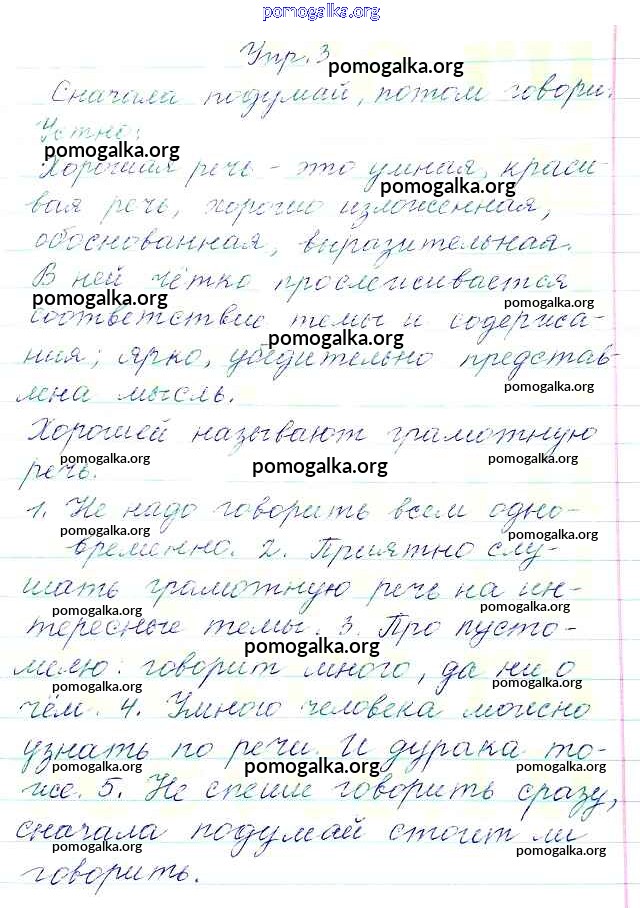 pomogalka.org
Упр. 3
pomogalka.org
Сначала подумай, потом говори.
Устно:
pomogalka.org
Хорошая речь - это умная, краси-
pomogalka.org
вая речь, хорошо изложенная,
обоснованная, выразительная.
В ней чётко прослеживается
pomogalka.org pomogalka.org
соответствие темы и содержа-
pomogalka.org
ния; ярко, убедительно представ-
pomogalka.org
лена мысль.
Хорошей называют грамотную
pomogalka.org pomogalka.org pomogalka.org
речь.
1. Не надо говорить всем одно-
pomogalka.org pomogalka.org
временно. 2. Приятно слу-
шать грамотную речь на ин-
pomogalka.org pomogalka.org
тересные темы. 3. Про пусто-
pomogalka.org
мелю: говорит много, да ни о
pomogalka.org pomogalka.org
чём. 4. Умного человека можно
узнать по речи. И дурака то-
pomogalka.org pomogalka.org pomogalka.org
же. 5. Не спеши говорить сразу,
сначала подумай стоит ли
pomogalka.org pomogalka.org
говорить.